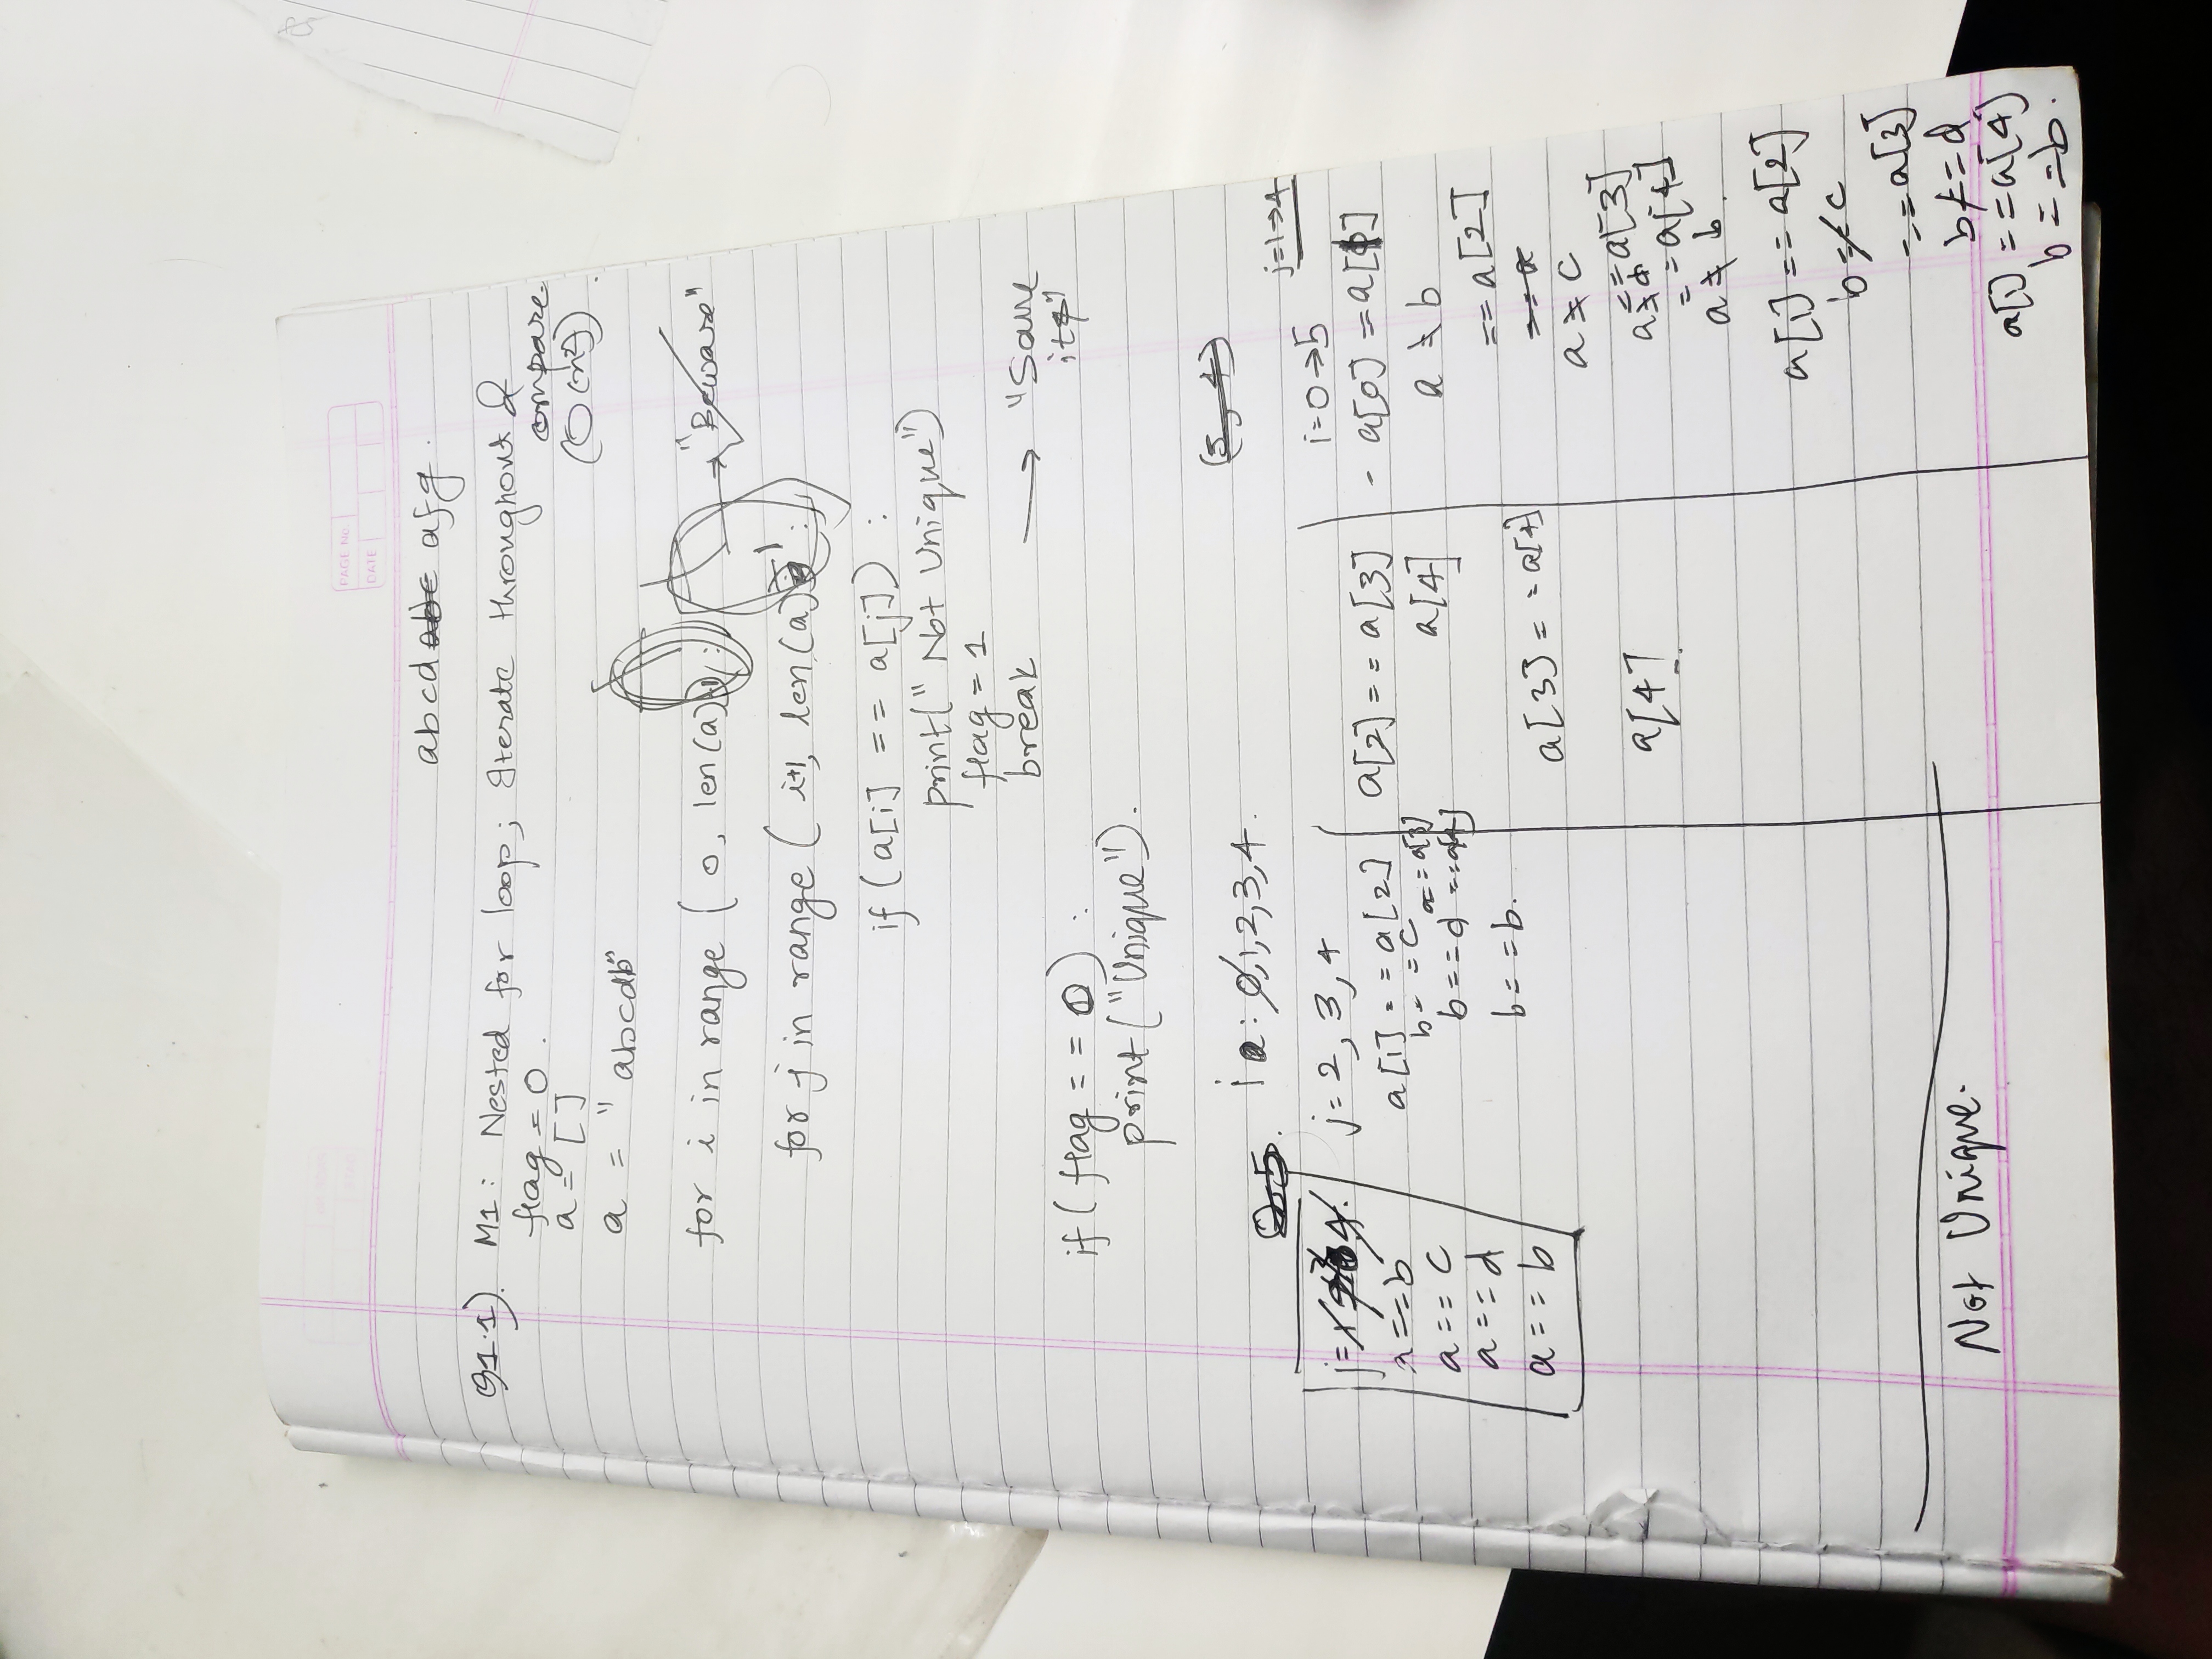 PAGE No.
DATE
abcd afg.
Q1.1). M1: Nested for loop; Iterate throughout &
compare.
(O(n²)).
flag = 0.
a = []
a = "abcdb"
for i in range (0, len(a)):
"Beware"
for j in range (i+1, len(a)):
if (a[i] == a[j]) :
print("Not Unique")
flag = 1
break → "Same
if (flag == 0) :
print ("Unique").
(5, 4)
i : 0,1,2,3,4.
0-5.
j=1→4
j=
a==b
a==c
a==d
a==b
j=2, 3, 4
a[1]==a[2]
b==c ==a[3]
b==d ==a[4]
b==b.
a[2]==a[3]
a[4]
a[3]==a[4]
a[4].
i=0→5
- a[0]=a[1]
a ≠ b
==a[2]
==a
a ≠ c
==a[3]
a≠d
==a[4]
a ≠ b.
a[1]==a[2]
b≠c
==a[3]
b≠=d
a[1]==a[4]
b==b.
Not Unique.